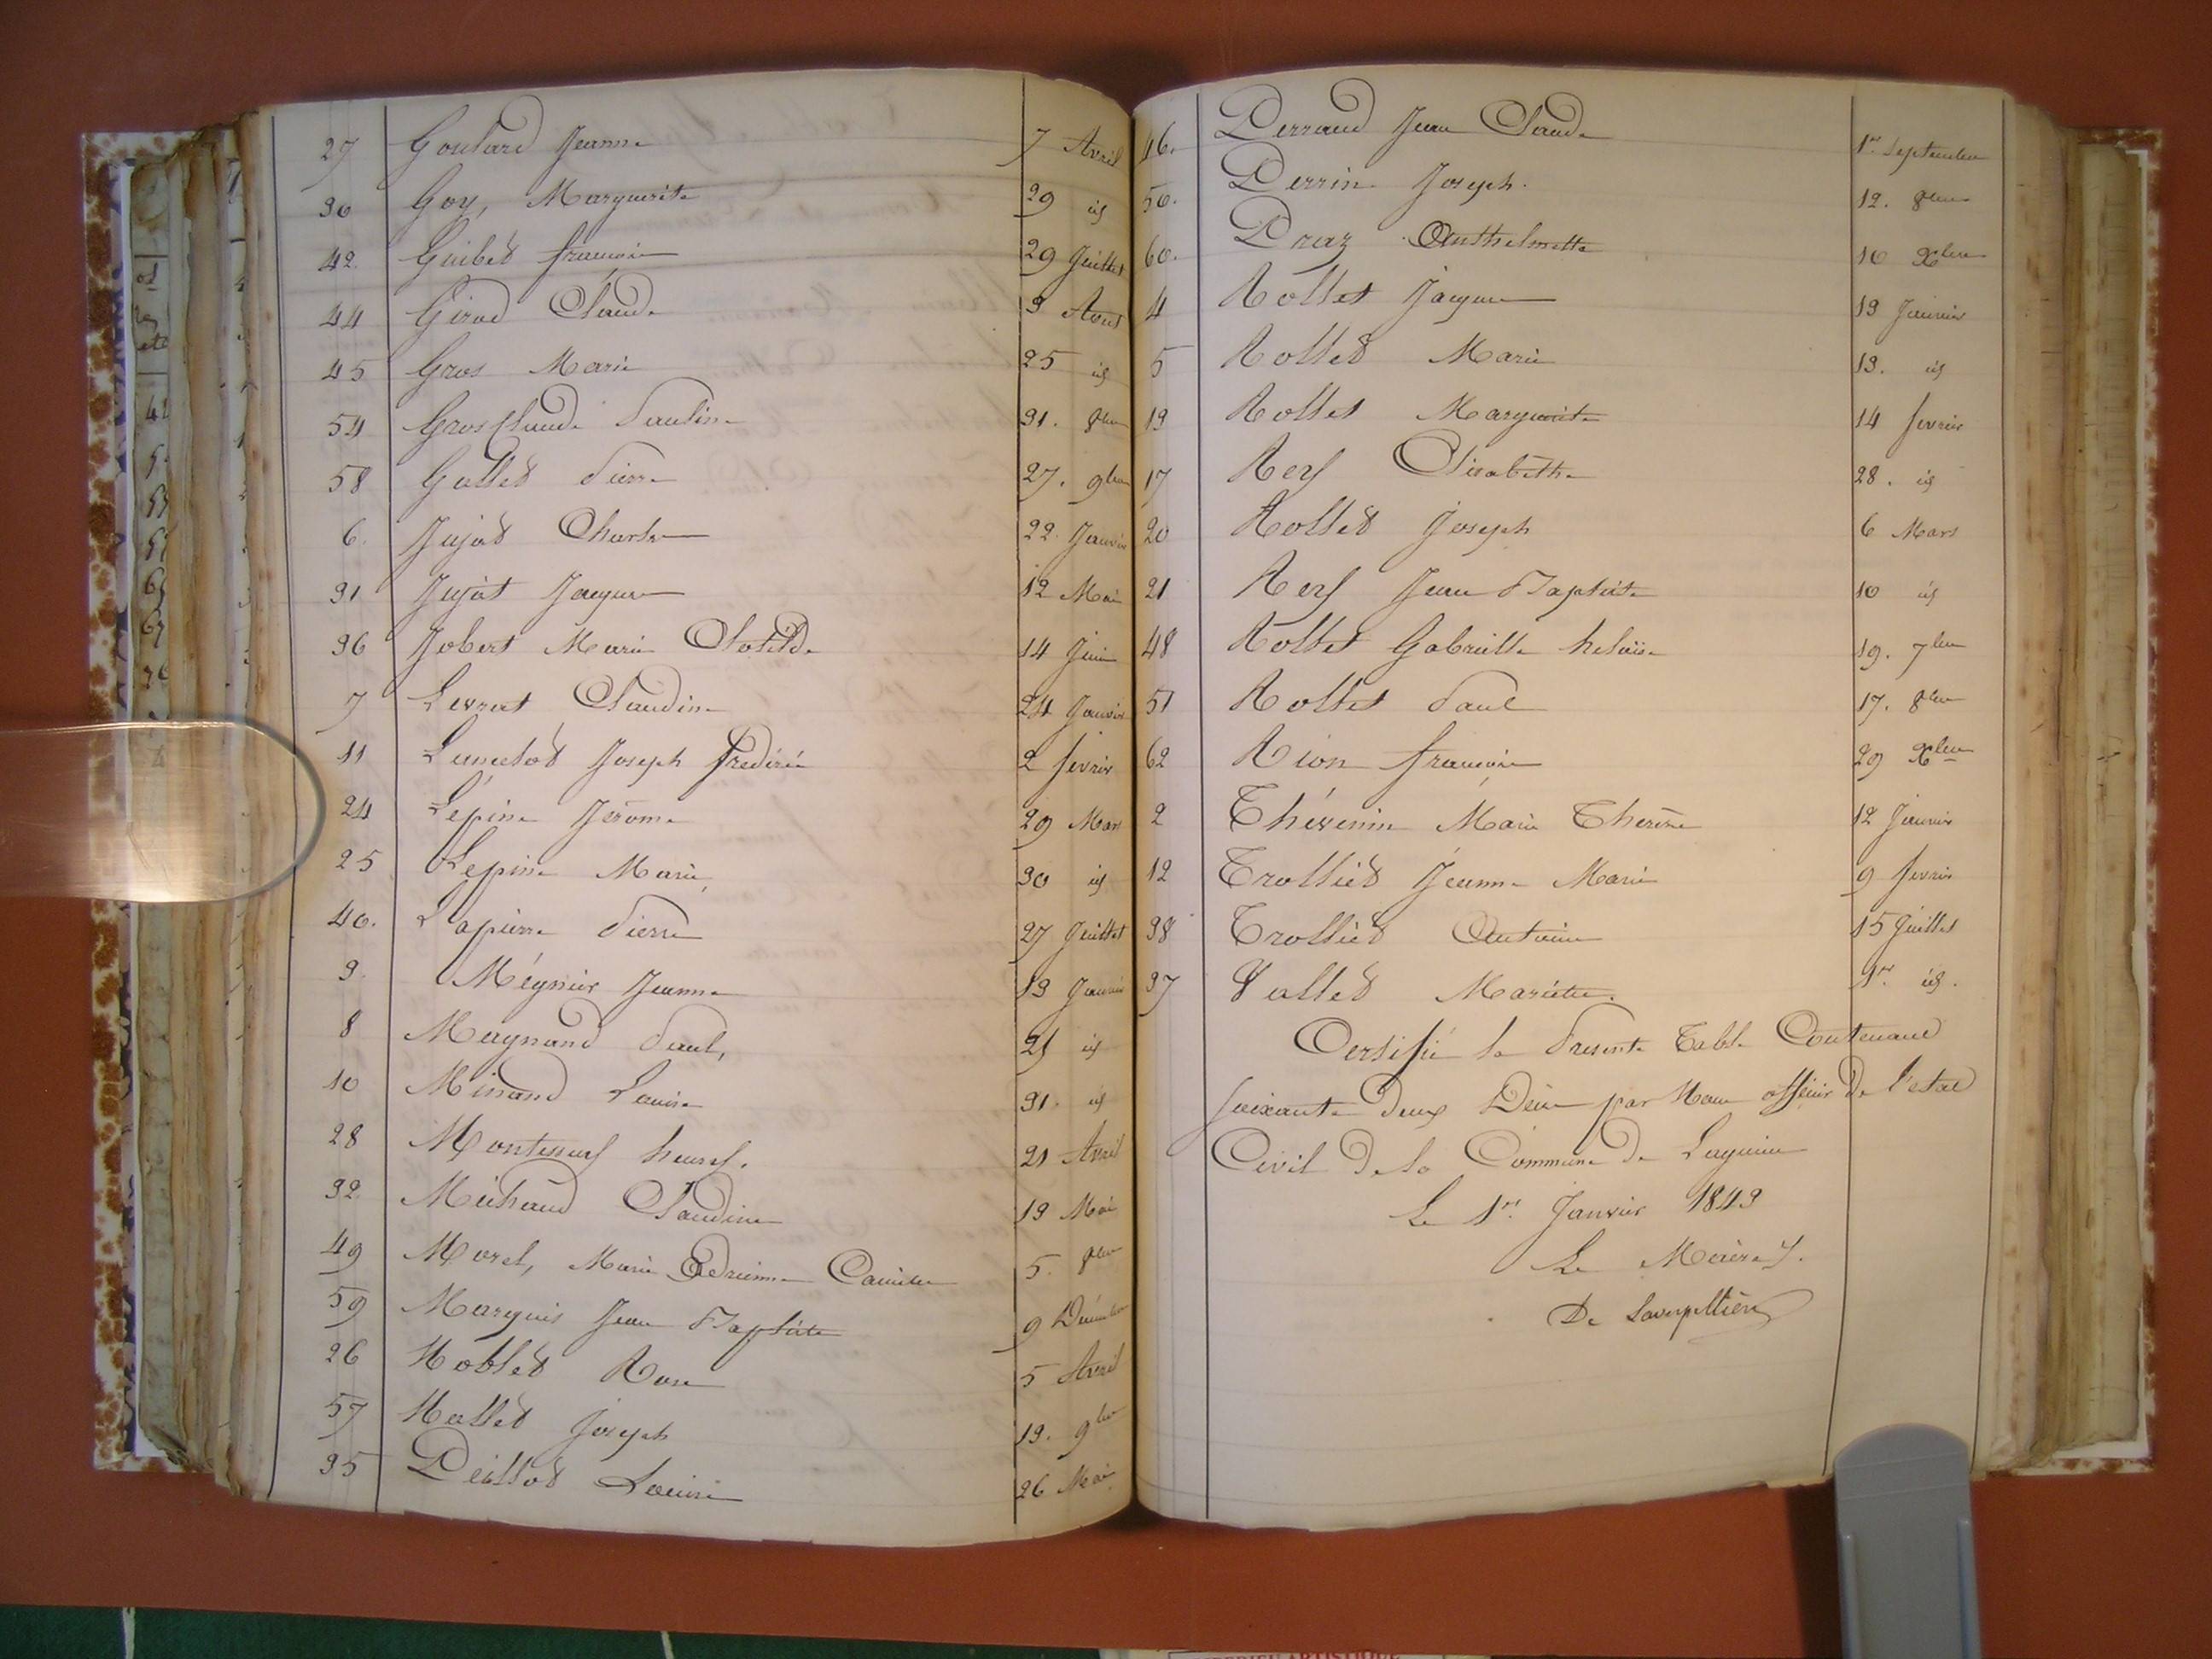 27 Goulard Jeanne 7 Avril
30 Goy, Marguerite 29 id
42 Guibet françois 29 Juillet
44 Girod Claude 3 Aout
45 Gros Marie 25 id
54 Gros Claude Pauline 31. 8bre
58 Gallet Pierre 27. 9bre
6. Jujat Charles 22. Janvier
31 Jujat Jacques 12 Mai
36 Jobert Marie Clotilde 14 Juin
7 Levrat Claudine 24 Janvier
11 Lancelot Joseph frédéric 2 fevrier
24 Lépine Jérome 29 Mars
25 Lépine Marie 30 id
40. Lapierre Pierre 27 Juillet
3. Mégnier Jeanne 13 Janvier
8 Magnand Paul, 25 id
10 Minand Louise 31. id
28 Montessuy 21 Avril
32. Michaud Claudine 13 Mai
49 Morel, Marie Adrienne Camille 5. 8bre
59 Marquis Jean Baptiste 9 Décembre
26 Noblet Rose 5 Avril
57 Nallet Joseph 13. 9bre
35 Peillod Louise 26 Mai
46. Perraud Jean Claude 1er Septembre
50. Perrin Joseph. 12. 8bre
60. Praz Anthelmette 10 Xbre
4 Rollet Jacques 13 Janvier
5 Rollet Marie 13. id
13 Rollet Marguerite 14 fevrier
17 Rey Elisabethe 28. id
20 Rollet Joseph 6 Mars
21 Rey Jean Baptiste 10 id
48 Rollet Gabrielle héloïse 19. 7bre
51 Rollet Paul 17. 8bre
62 Rion françois 29 Xbre
2 Thévenin Marie Thérèse 12 Janvier
12 Trolliet Jeanne Marie 9 fevrier
38 Trolliet Antoine 15 Juillet
37 Vallet Mariette. 1er id.
Certifié la Presente Table Contenant
soixante deux Décès par Nous officier de l'etat
Civil de la Commune de Lagnieu
Le 1er Janvier 1843
Le Maire